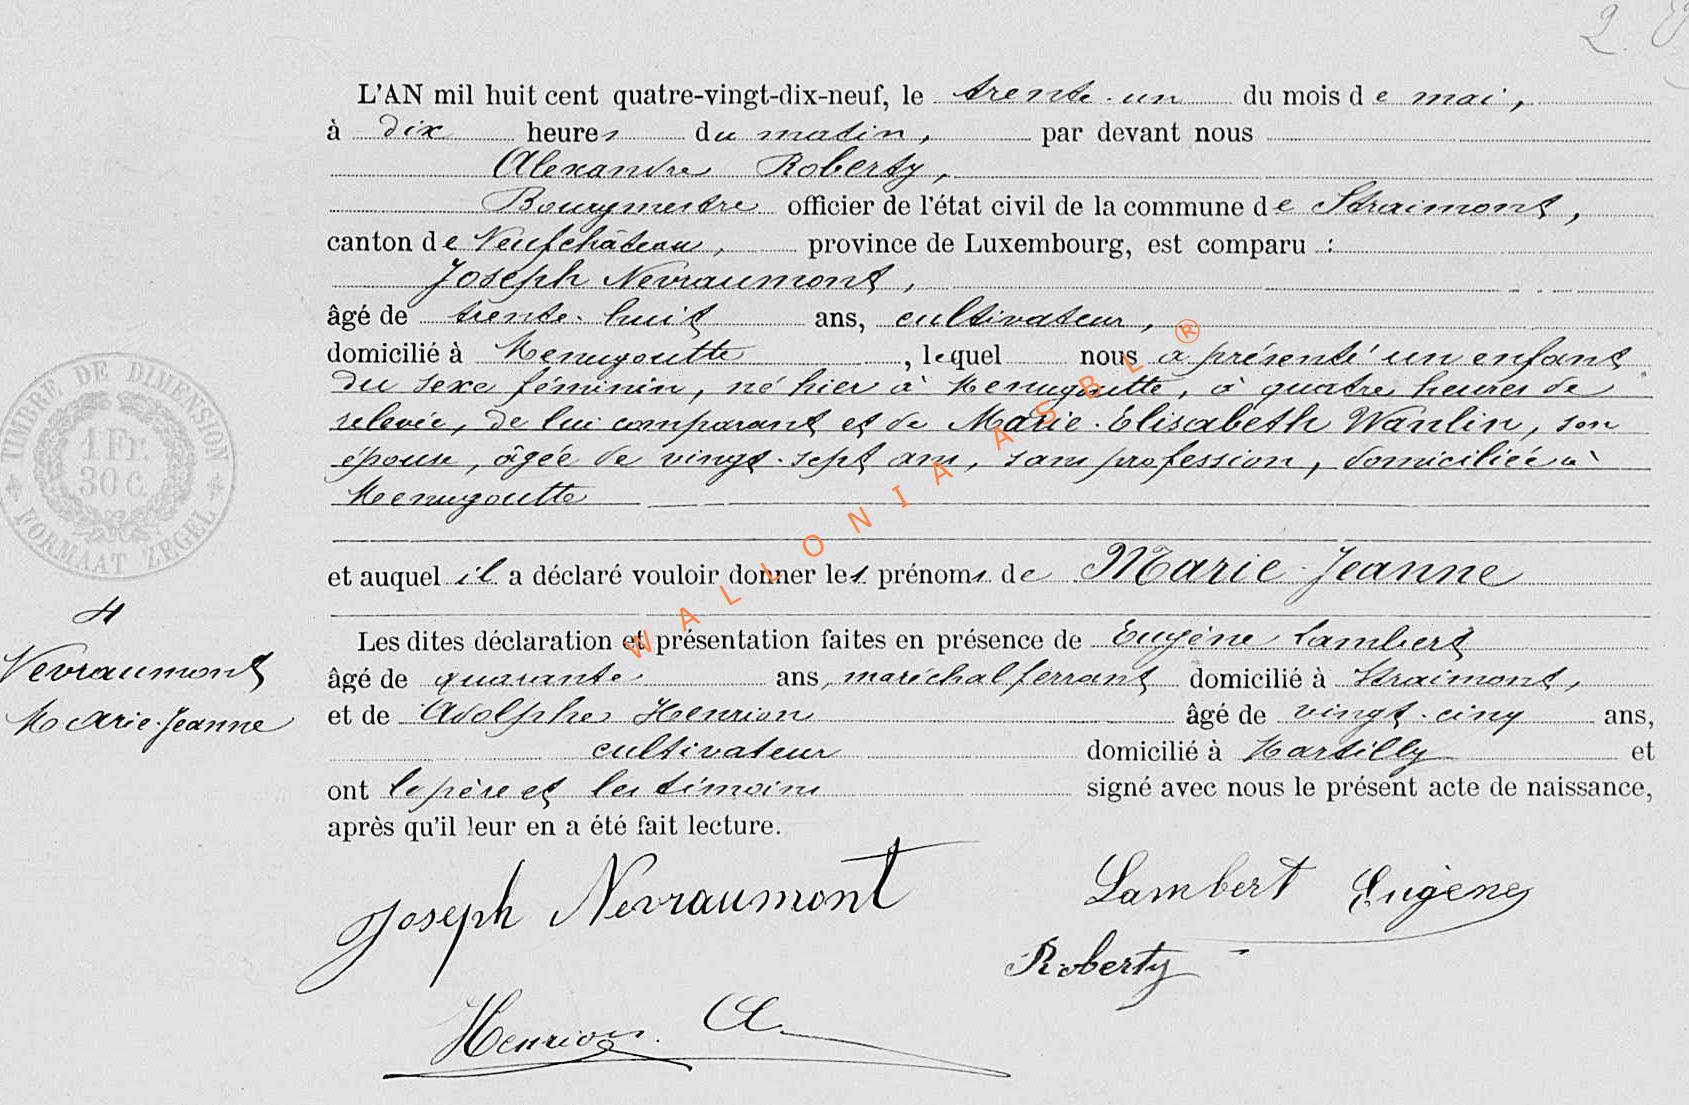 2.
L'AN mil huit cent quatre-vingt-dix-neuf, le trente-un du mois de mai,
à dix heures du matin, par devant nous
Alexandre Roberty,
Bourgmestre officier de l'état civil de la commune de Straimont,
canton de Neufchâteau, province de Luxembourg, est comparu :
Joseph Nevraumont,
âgé de trente-huit ans, cultivateur,
domicilié à Menugoutte, lequel nous a présenté un enfant
du sexe féminin, né hier à Menugoutte, à quatre heures de
relevée, de lui comparant et de Marie-Elisabeth Wanlin, son
épouse, âgée de vingt-sept ans, sans profession, domiciliée à
Menugoutte
et auquel il a déclaré vouloir donner les prénoms de Marie-Jeanne
Les dites déclaration et présentation faites en présence de Eugène Lambert
âgé de quarante ans, maréchal ferrant domicilié à Straimont,
et de Adolphe Henrion âgé de vingt-cinq ans,
cultivateur domicilié à Martilly et
ont le père et les témoins signé avec nous le présent acte de naissance,
après qu'il leur en a été fait lecture.
TIMBRE DE DIMENSION
1 Fr.
30 C.
FORMAAT ZEGEL
4
Nevraumont
Marie-Jeanne
Joseph Nevraumont
Lambert Eugène
Roberty
Henrion A.
WALLONIA ASBL ®